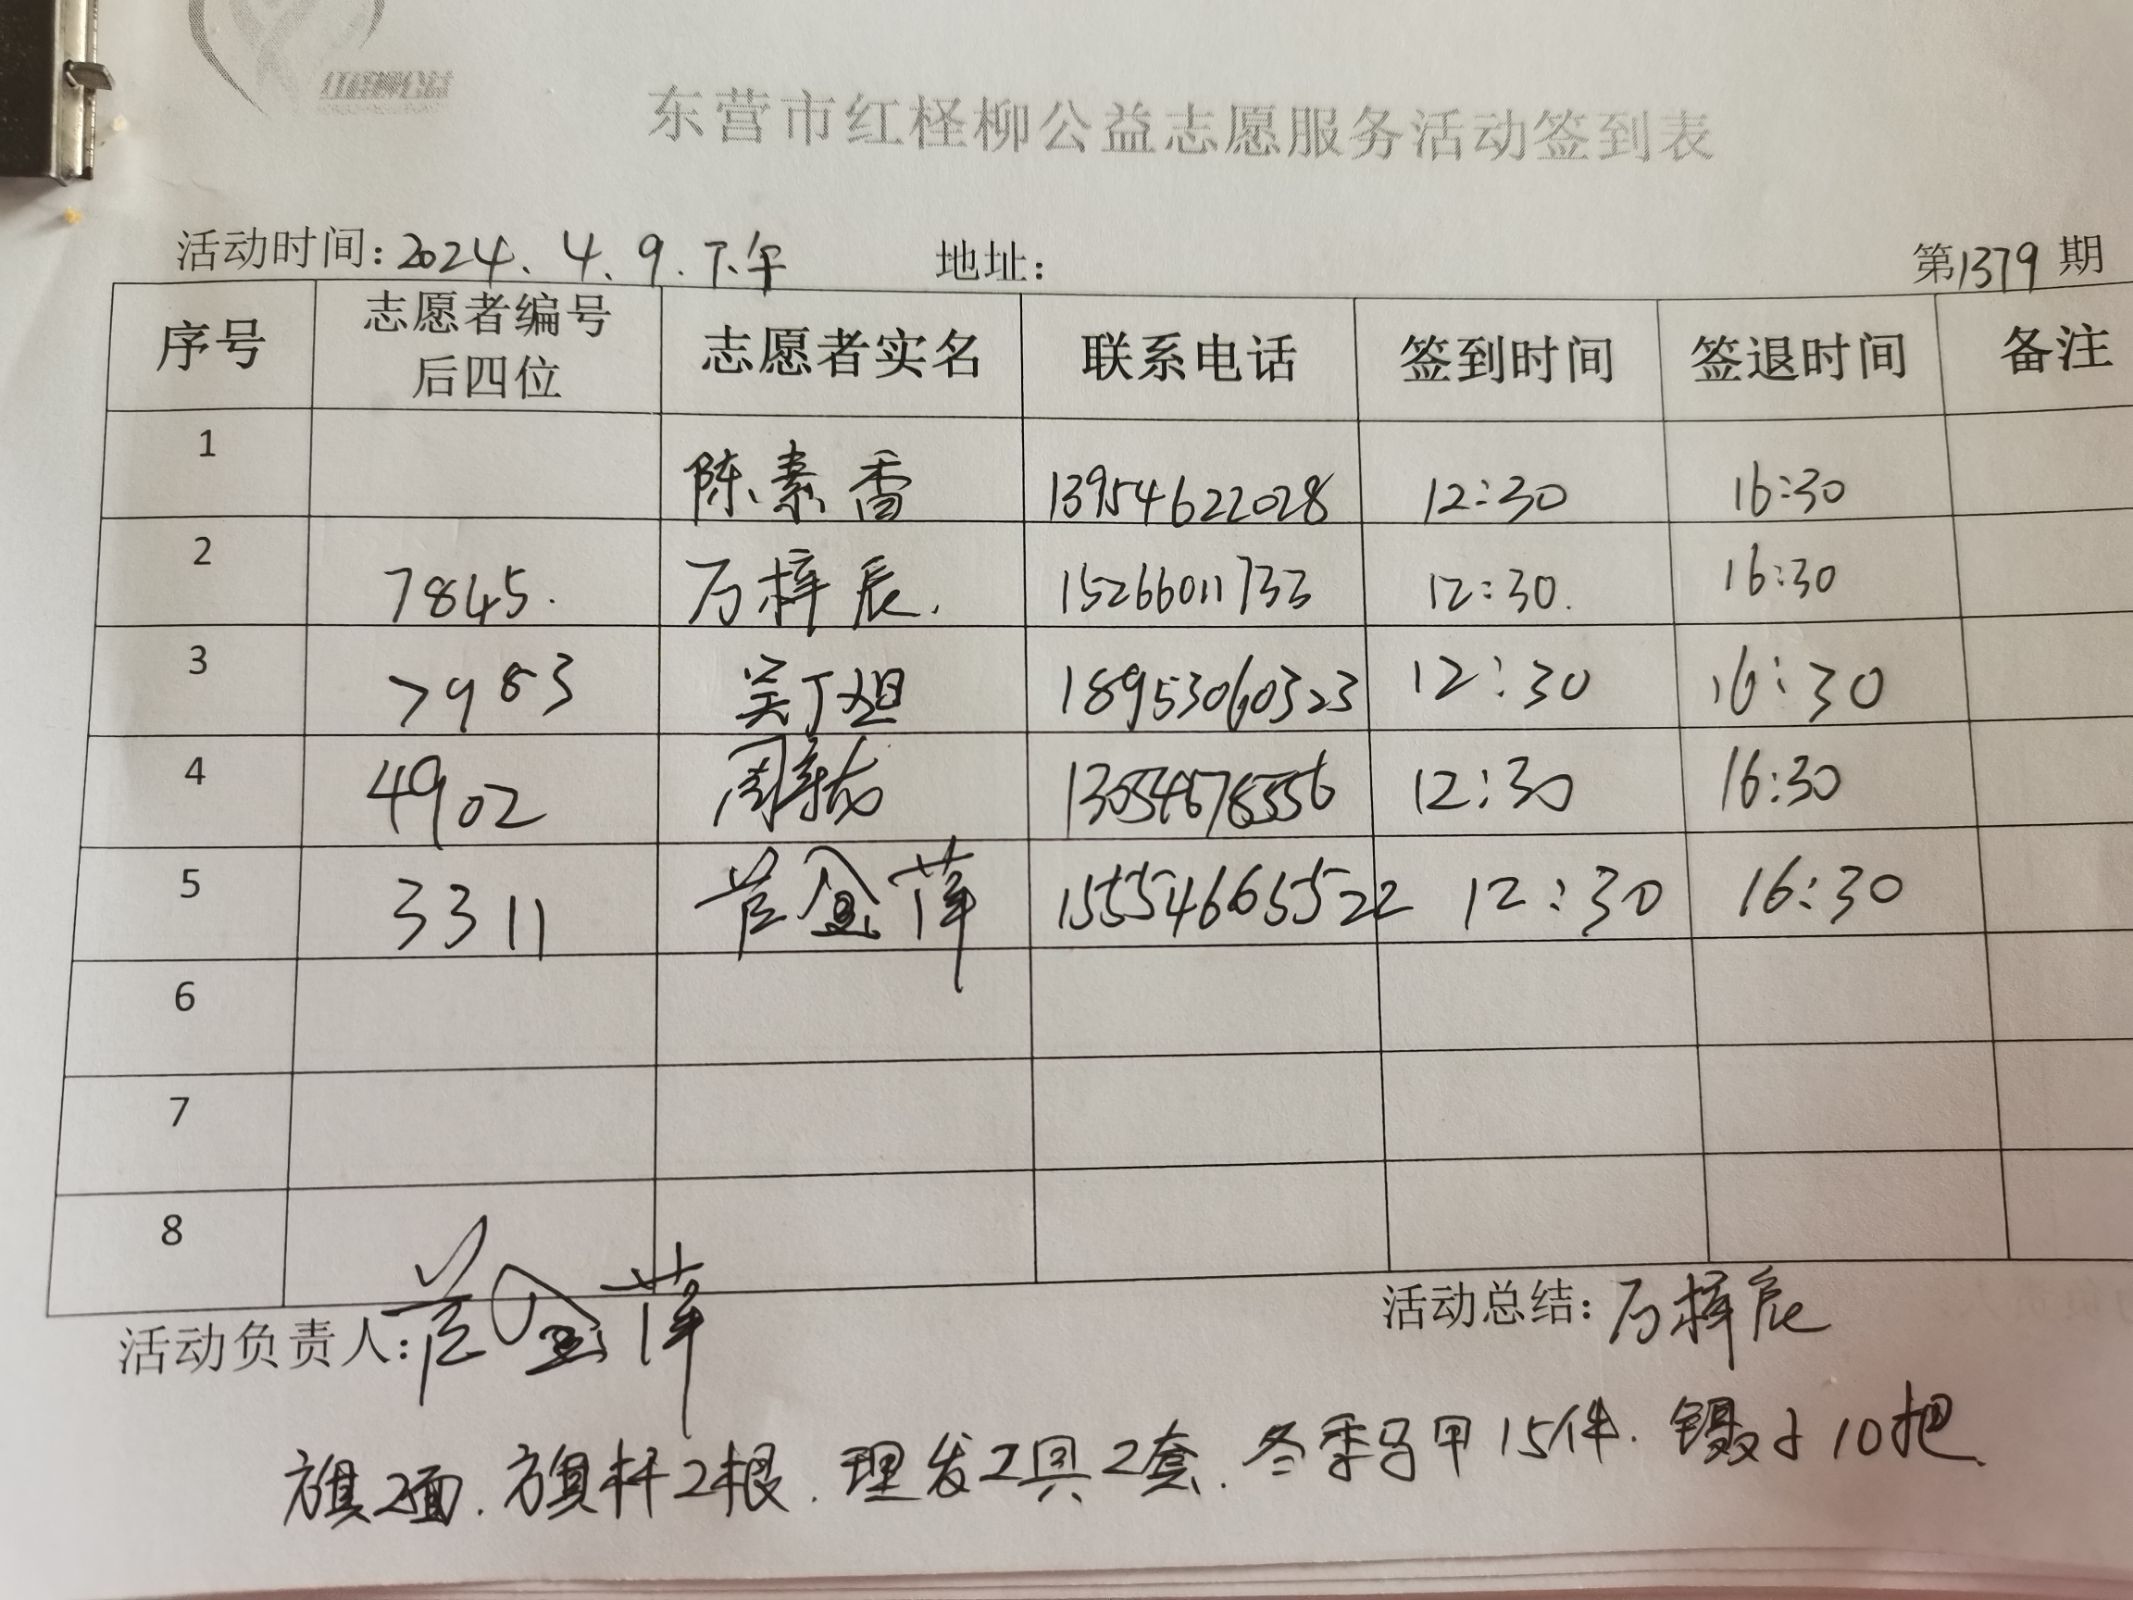 红柽柳公益
东营市红柽柳公益志愿服务活动签到表
活动时间：2024.4.9.下午 地址： 第1379期
序号 志愿者编号后四位 志愿者实名 联系电话 签到时间 签退时间 备注
1 陈素香 13954622028 12:30 16:30
2 7845. 万梓辰. 15266011733 12:30. 16:30
3 7983 吴丁妲 18953060323 12:30 16:30
4 4902 周 12:30 16:30
5 3311 金萍 15554665522 12:30 16:30
6
7
8
活动负责人： 金萍 活动总结：万梓辰
旗2面.旗杆2根.理发工具2套.冬季马甲15件.镊子10把